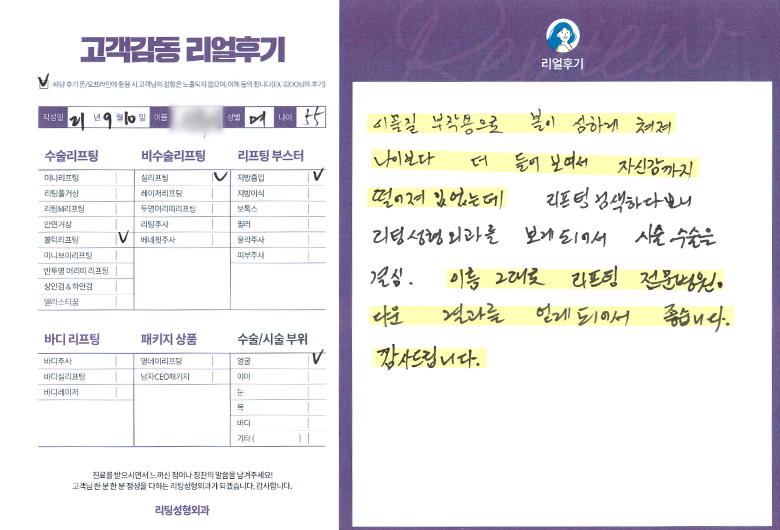 고객감동 리얼후기
해당 후기 온/오프라인에 활용 시 고객님의 성함은 노출되지 않으며, 이에 동의 합니다(EX. 김OO님의 후기)
작성일 21 년 9 월 10 일 이름 성별 여 나이 55
수술리프팅
미니리프팅
리팅풀거상
리팅M리프팅
안면거상
볼턱리프팅
미니브이리프팅
반투명 머리띠 리프팅
상안검 & 하안검
엘라스티꿈
비수술리프팅
실리프팅
레이저리프팅
투명머리띠리프팅
리팅주사
베네핏주사
리프팅 부스터
지방흡입
지방이식
보톡스
필러
윤곽주사
피부주사
바디 리프팅
바디주사
바디실리프팅
바디레이저
패키지 상품
영데이리프팅
남자CEO패키지
수술/시술 부위
얼굴
이마
눈
목
바디
기타 ( )
진료를 받으시면서 느끼신 점이나 칭찬의 말씀을 남겨주세요!
고객님 한 분 한 분 정성을 다하는 리팅성형외과가 되겠습니다. 감사합니다.
리팅성형외과
Review
리얼후기
이물질 부작용으로 볼이 심하게 쳐져
나이보다 더 들어 보여서 자신감까지
떨어져 있었는데 리프팅 검색하다보니
리팅성형외과를 보게 되어서 시술 수술은
결심. 이름 그대로 리프팅 전문병원.
다운 결과를 얻게 되어서 좋습니다.
감사드립니다.